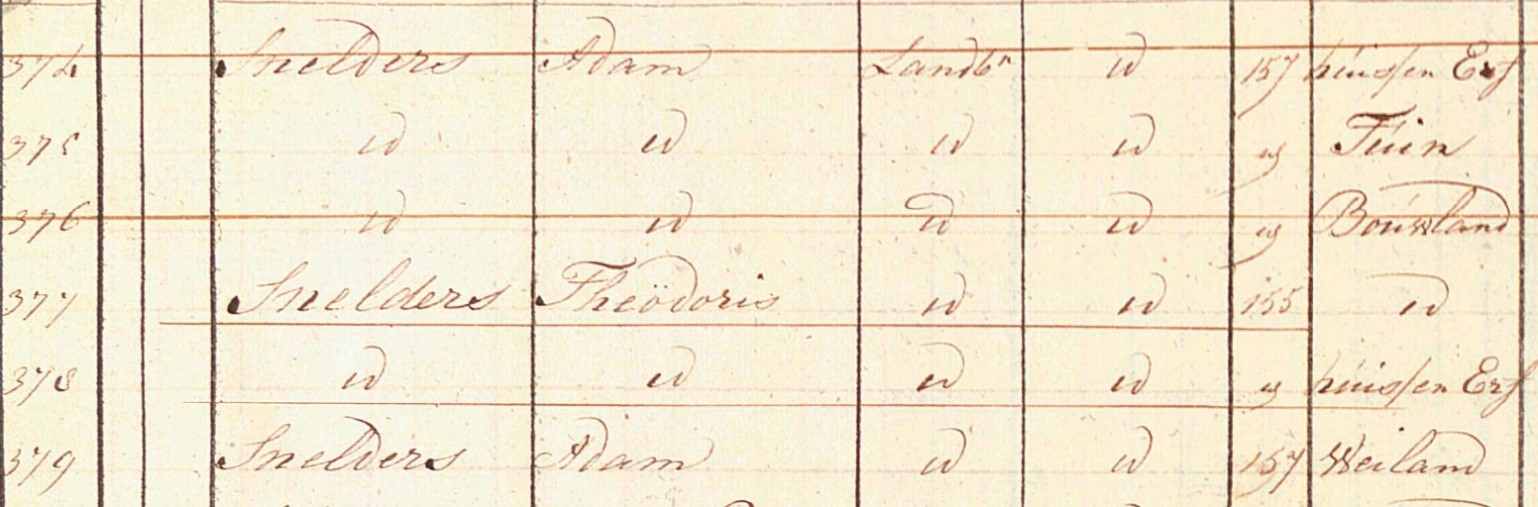 374 Snelders Adam Landbr id 157 huis en Erf
375 id id id id id Tuin
376 id id id id id Bouwland
377 Snelders Theodoris id id 155 id
378 id id id id id huis en Erf
379 Snelders Adam id id 157 Weiland